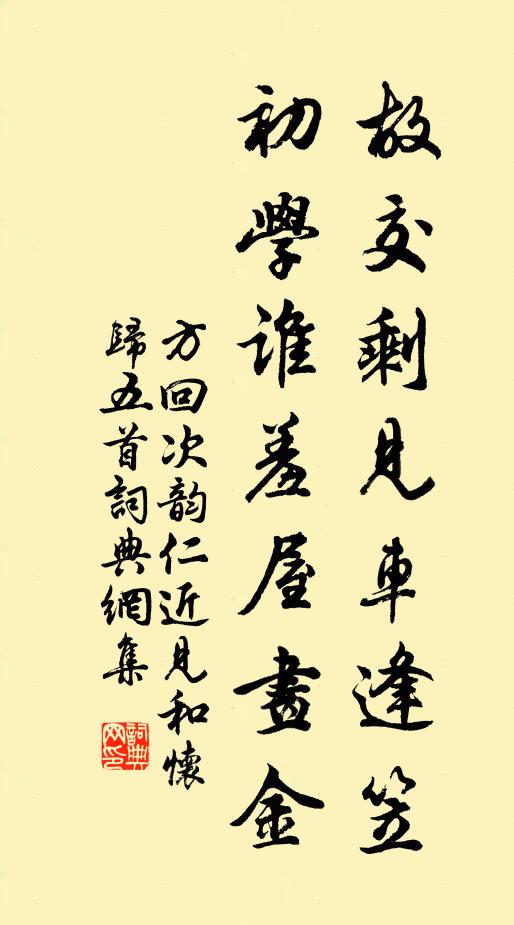 故交剩見車逢笠
初學誰羞屋畫金
方回次韵仁近見和懷
歸五首詞典網集
詞典
网印